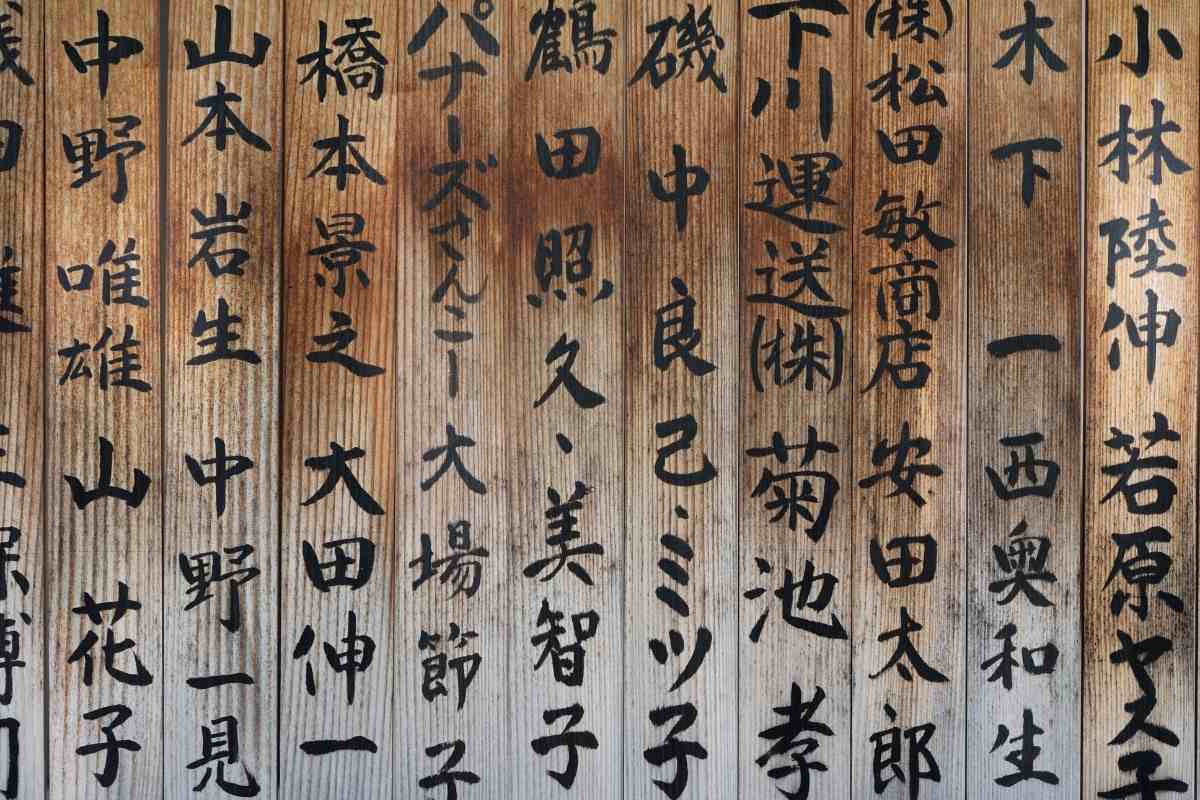 小林陸伸 若原ヤス子
木下一 西奥和生
(株)松田敏商店 安田太郎
下川運送(株) 菊池 孝
磯中良己 ミツ子
鶴田照久、美智子
パナーズさんこー 大場節子
橋本景之 大田伸一
山本岩生 中野一見
中野唯雄 山 花子